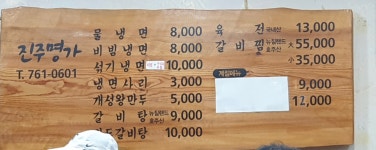 진주명가
T. 761-0601
물냉면 8,000
비빔냉면 8,000
섞기냉면 10,000
냉면사리 3,000
개성왕만두 5,000
갈비탕 뉴질랜드 호주산 9,000
갈비탕 10,000
육전 국내산 13,000
갈비찜 뉴질랜드 호주산 大 55,000
小 35,000
계절메뉴
9,000
12,000